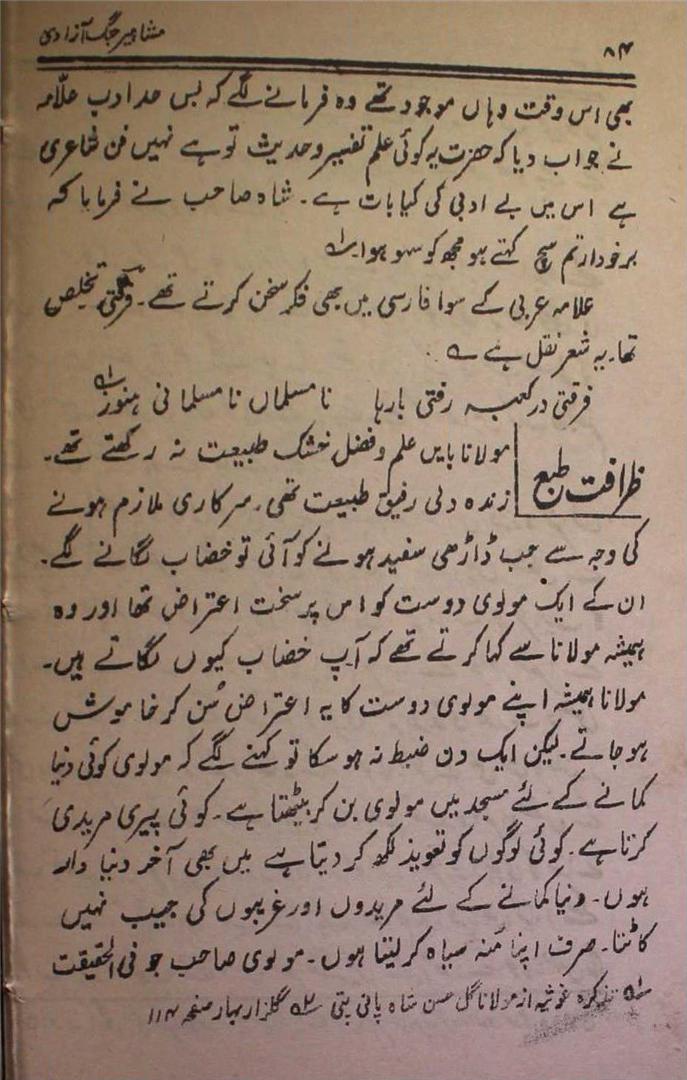 ۸۴
مشاہیر جنگ آزادی
بھی اس وقت وہاں موجود تھے وہ فرمانے لگے کہ بس حد ادب علّامہ
نے جواب دیا کہ حضرت یہ کوئی علم تفسیر و حدیث تو ہے نہیں فن شاعری
ہے اس میں بے ادبی کی کیا بات ہے۔ شاہ صاحب نے فرمایا کہ
برخوردار تم سچ کہتے ہو مجھ کو سہو ہوا۔ ۱؎
علامہ عربی کے سوا فارسی میں بھی فکر سخن کرتے تھے۔ فرقتی تخلص
تھا۔ یہ شعر نقل ہے ؎
فرقتی در کعبہ رفتی بارہا نا مسلماں نا مسلمانی ہنوز ۲؎
ظرافت طبع
مولانا بایں علم و فضل خشک طبیعت نہ رکھتے تھے۔
زندہ دلی رفیق طبیعت تھی۔ سرکاری ملازم ہونے
کی وجہ سے جب ڈاڑھی سفید ہونے کو آئی تو خضاب لگانے لگے۔
ان کے ایک مولوی دوست کو اس پر سخت اعتراض تھا اور وہ
ہمیشہ مولانا سے کہا کرتے تھے کہ آپ خضاب کیوں لگاتے ہیں۔
مولانا ہمیشہ اپنے مولوی دوست کا یہ اعتراض سُن کر خاموش
ہو جاتے۔ لیکن ایک دن ضبط نہ ہو سکا تو کہنے لگے کہ مولوی کوئی دنیا
کمانے کے لئے مسجد میں مولوی بن کر بیٹھتا ہے۔ کوئی پیری مریدی
کرتا ہے۔ کوئی لوگوں کو تعویذ لکھ کر دیتا ہے میں بھی آخر دنیا دار
ہوں۔ دنیا کمانے کے لئے مریدوں اور غریبوں کی جیب نہیں
کاٹتا۔ صرف اپنا مُنہ سیاہ کر لیتا ہوں۔ مولوی صاحب جو فی الحقیقت
۱؎ تذکرہ غوثیہ از مولانا گل حسن شاہ پانی پتی ۲؎ گلزار بہار صفحہ ۱۱۴